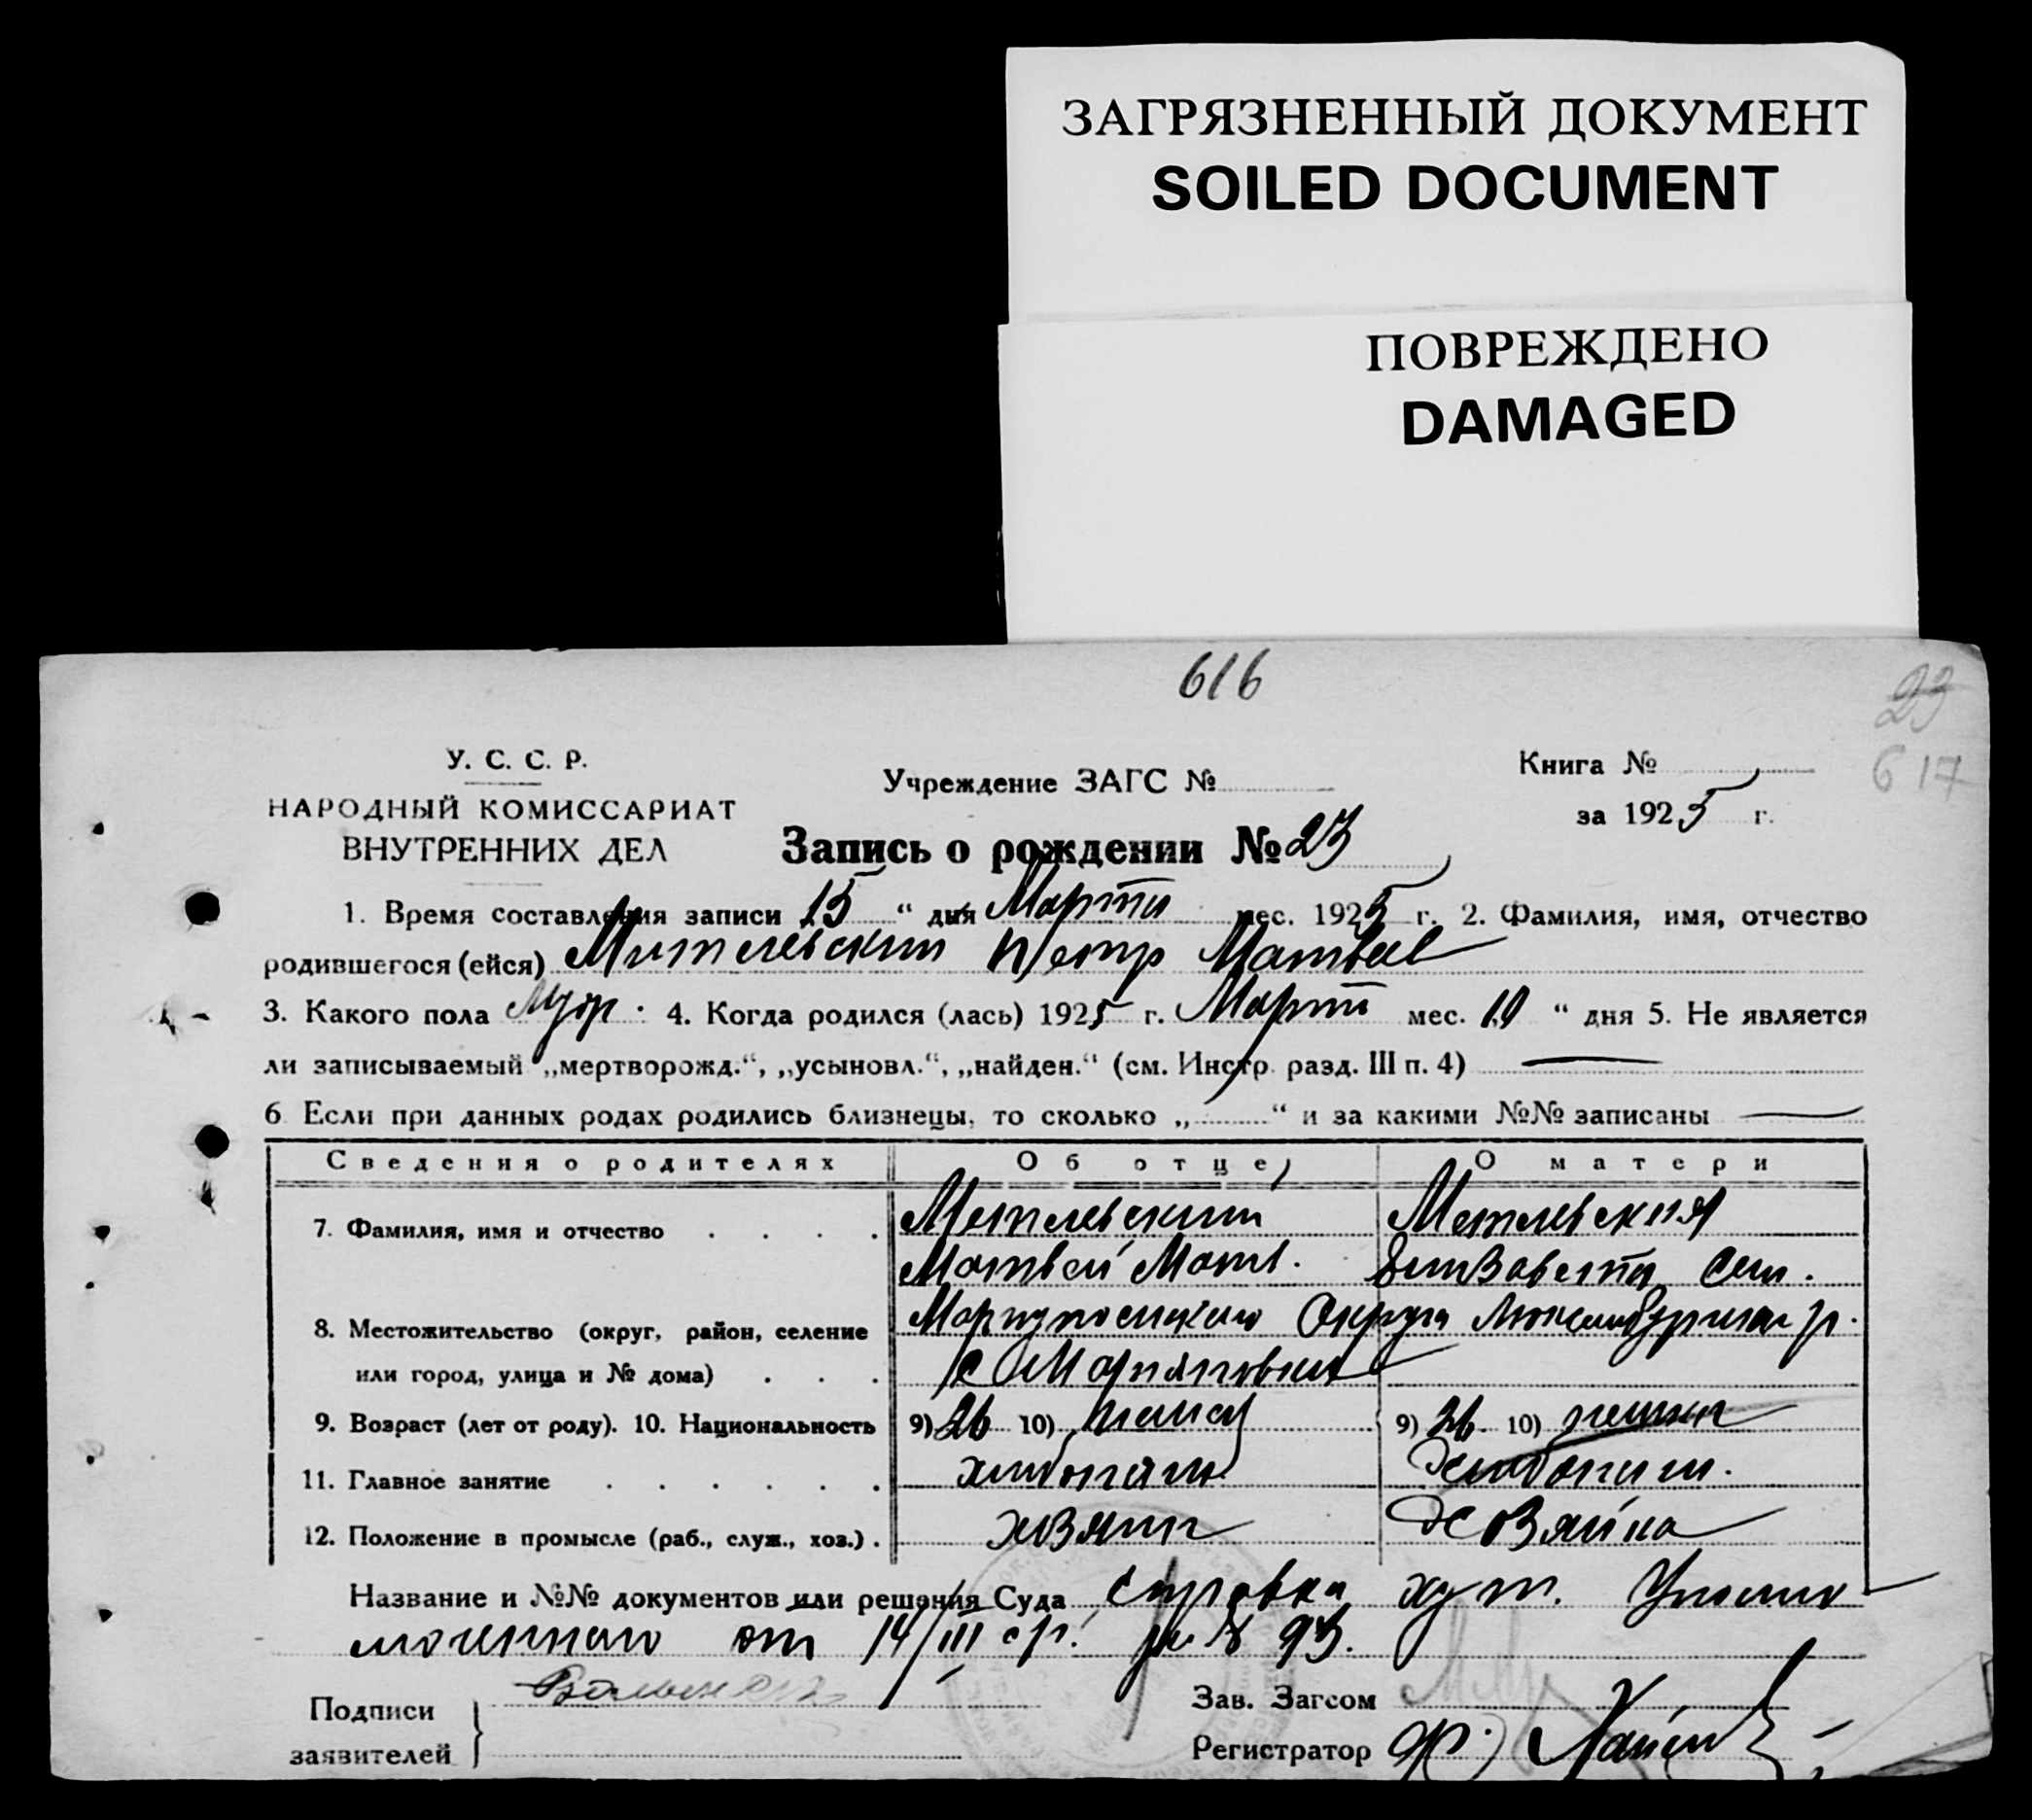 ЗАГРЯЗНЕННЫЙ ДОКУМЕНТ
SOILED DOCUMENT
ПОВРЕЖДЕНО
DAMAGED
616
23
617
У. С. С. Р.
НАРОДНЫЙ КОМИССАРИАТ
ВНУТРЕННИХ ДЕЛ
Учреждение ЗАГС №
Книга №
за 1925 г.
Запись о рождении № 23
1. Время составления записи 15 " дня Марта мес. 1925 г. 2. Фамилия, имя, отчество
родившегося (ейся) Митлевский Петр Матвев
3. Какого пола Муж. 4. Когда родился (лась) 1925 г. Март мес. 10 " дня 5. Не является
ли записываемый „мертворожд.“, „усыновл.“, „найден.“ (см. Инстр. разд. III п. 4) —
6 Если при данных родах родились близнецы, то сколько „ “ и за какими №№ записаны —
Сведения о родителях Об отце О матери
7. Фамилия, имя и отчество Метлевский Метлевская
Матвей Матв. Елизавета Сем.
8. Местожительство (округ, район, селение Мариупольского Округа Люксембургского р.
или город, улица и № дома) с
9. Возраст (лет от роду). 10. Национальность 9) 26 10) 9) 26 10)
11. Главное занятие хлебопаш. хлебопаш.
12. Положение в промысле (раб., служ., хоз.) хозяин хозяйка
Название и №№ документов или решения Суда Справка хут. Уполно
моченного от 14/III с/г. за № 93.
Подписи
заявителей
Зав. Загсом
Регистратор